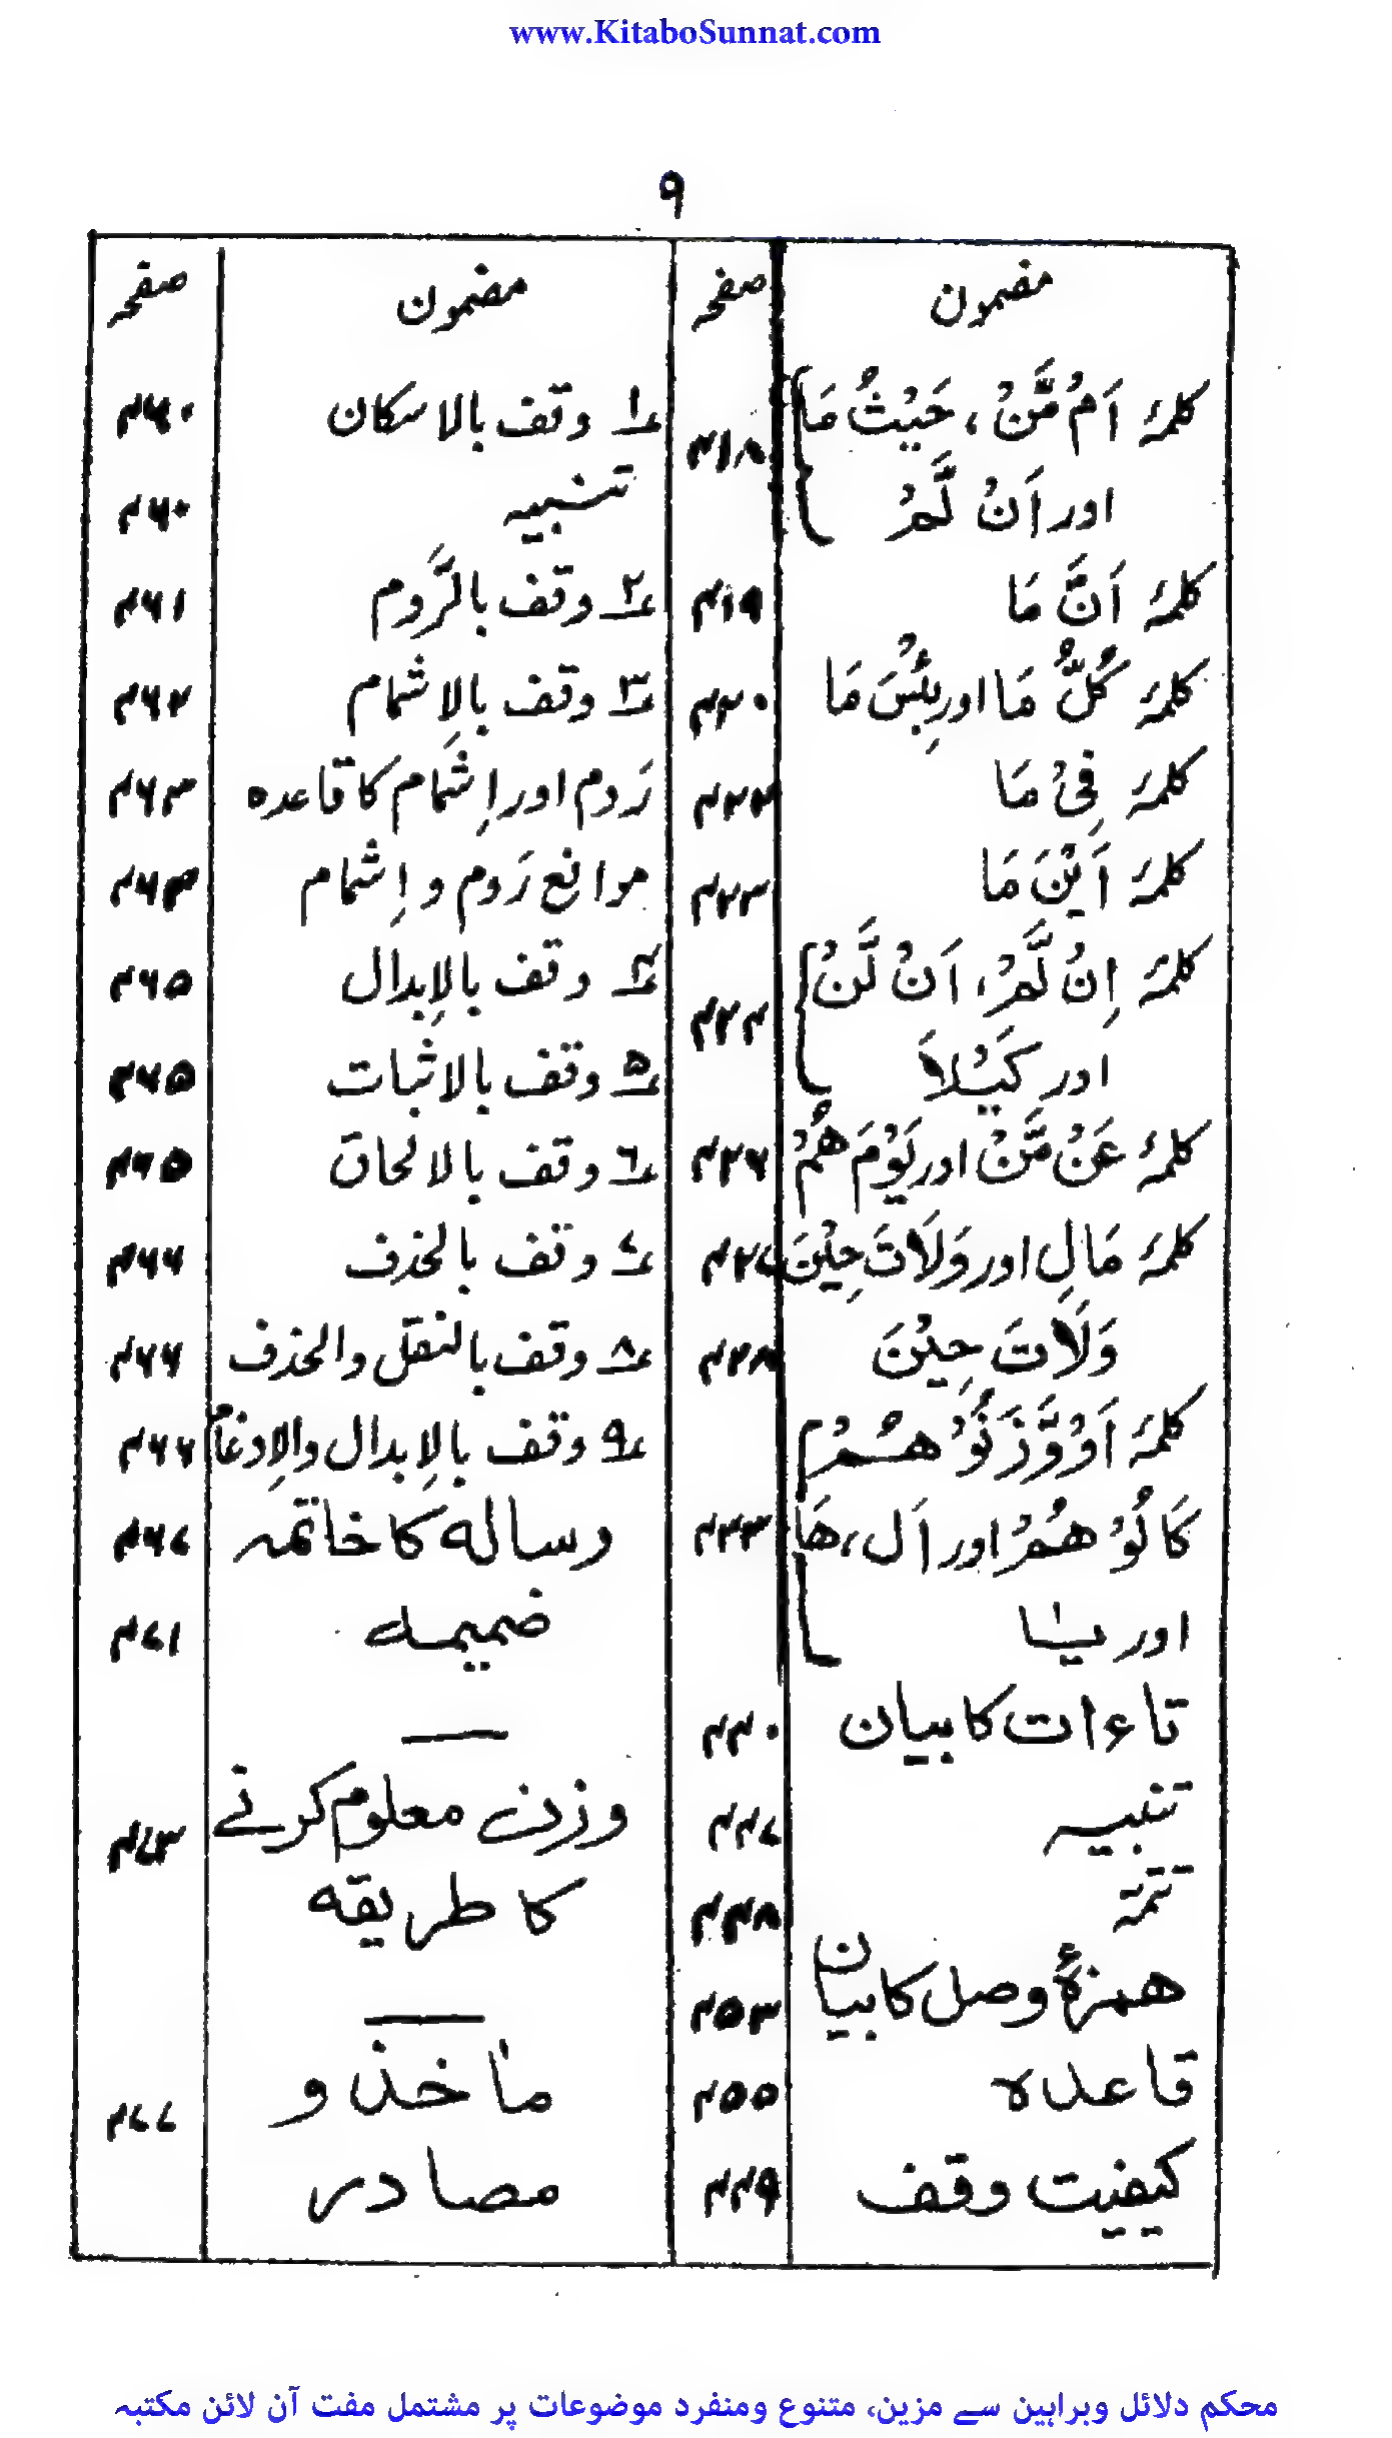 www.KitaboSunnat.com
۹
مضمون صفحہ
کلمۂ اَمْ مَّنْ ، حَیْثُ مَا
اور اَنْ لَّمْ ۴۱۸
کلمۂ اَنَّ مَا ۴۱۹
کلمۂ کُلُّ مَا اور بِئْسَ مَا ۴۲۰
کلمۂ فِیْ مَا ۴۲۲
کلمۂ اَیْنَ مَا ۴۲۳
کلمۂ اِنْ لَّمْ، اَنْ لَّنْ
اور کَیْلَا ۴۲۴
کلمۂ عَنْ مَّنْ اور یَوْمَ هُمْ ۴۲۶
کلمۂ مَالِ اور وَلَاتَ حِیْنَ ۴۲۷
وَلَاتَ حِیْنَ ۴۲۸
کلمۂ اَوْ وَّزَنُوْ هُمْ
کَالُوْ هُمْ اور اَل، هَا ۴۳۳
اور یٰا
تاءات کا بیان ۴۴۰
تنبیہ ۴۴۷
تتمّہ ۴۴۸
همزۂ وصل کا بیان ۴۵۳
قاعدہ ۴۵۵
کیفیت وقف ۴۴۹
مضمون صفحہ
۱؎ وقف بالاسکان ۴۶۰
تنبیہ ۴۶۰
۲؎ وقف بالرَّوم ۴۶۱
۳؎ وقف بالاِشمام ۴۶۲
رَوم اور اِشمام کا قاعدہ ۴۶۳
موانع رَوم و اِشمام ۴۶۴
۴؎ وقف بالاِبدال ۴۶۵
۵؎ وقف بالاثبات ۴۶۵
۶؎ وقف بالالحاق ۴۶۵
۷؎ وقف بالحذف ۴۶۶
۸؎ وقف بالنقل والحذف ۴۶۶
۹؎ وقف بالاِبدال والاِدغام ۴۶۶
رسالہ کا خاتمہ ۴۶۷
ضمیمہ ۴۷۱
وزن معلوم کرنے ۴۷۳
کا طریقہ
مأخذ و ۴۷۷
مصادر
محکم دلائل وبراہین سے مزین، متنوع ومنفرد موضوعات پر مشتمل مفت آن لائن مکتبہ